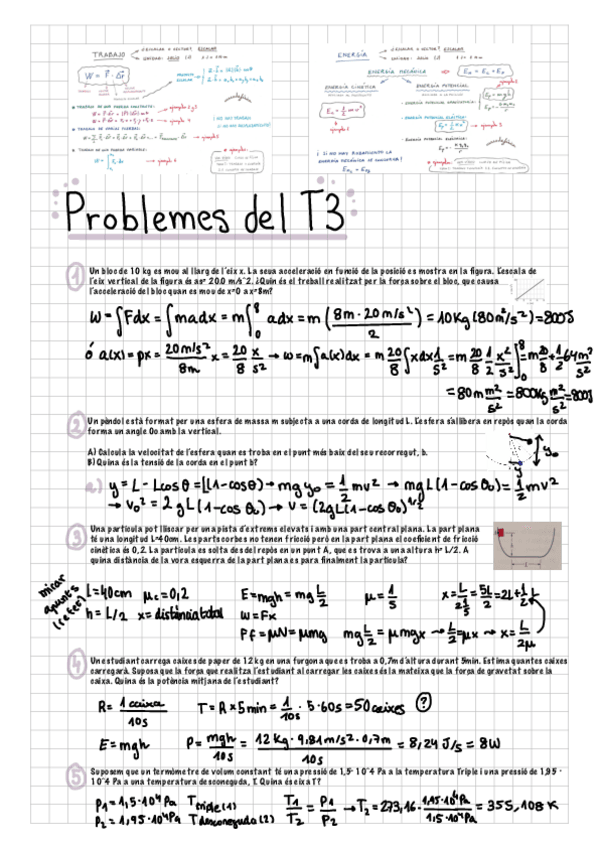 TRABAJO
¿ESCALAR O VECTOR? ESCALAR
UNIDAD: JULIO
W = F · Δr
ENERGÍA
¿ESCALAR O VECTOR? ESCALAR
UNIDAD: JULIO
ENERGÍA MECÁNICA
ENERGÍA CINÉTICA
ENERGÍA POTENCIAL
Problemes del T3
1 Un bloc de 10 kg es mou al llarg de l'eix x. La seua acceleració en funció de la posició es mostra en la figura. L'escala de
l'eix vertical de la figura és as= 20.0 m/s^2. ¿Quin és el treball realitzat per la força sobre el bloc, que causa
l'acceleració del bloc quan es mou de x=0 a x=8m?
W = ∫Fdx = ∫madx = m∫₀⁸ adx = m (8m · 20 m/s² / 2) = 10Kg (80m²/s²) = 800J
ó a(x) = px = 20m/s² / 8m x = 20/8 x/s² → w = m∫a(x)dx = m 20/8 ∫xdx 1/s² = m 20/8 1/2 x²/s² ]₀⁸ = m 20/8 · 1/2 64 m²/s²
= 80m m²/s² = 800Kg m²/s² = 800J
2 Un pèndol està format per una esfera de massa m subjecta a una corda de longitud L. L'esfera s'allibera en repòs quan la corda
forma un angle Oo amb la vertical.
A) Calcula la velocitat de l'esfera quan es troba en el punt més baix del seu recorregut, b.
B) Quina és la tensió de la corda en el punt b?
y₀
y
a) y = L - Lcosθ = L(1-cosθ) → mg y₀ = 1/2 mv² → mgL(1-cosθ₀) = 1/2 mv²
→ v₀² = 2gL(1-cosθ₀) → v = (2gL(1-cosθ₀))^1/2
3 Una partícula pot lliscar per una pista d'extrems elevats i amb una part central plana. La part plana
té una longitud L=40cm. Les parts corbes no tenen fricció però en la part plana el coeficient de fricció
cinètica és 0,2. La partícula es solta des del repòs en un punt A, que es trova a una altura h= L/2. A
quina distància de la vora esquerra de la part plana es para finalment la partícula?
mirar apunts (refer)
L=40cm μc=0,2 E=mgh=mg L/2 μ=1/5 x = L / 2 1/5 = 5L/2 = 2L + 1/2 L
h=L/2 x=distància total W=Fx
Pf=μN=μmg mg L/2 = μmgx → L/2 = μx → x = L/2μ
4 Un estudiant carrega caixes de paper de 12 kg en una furgona que es troba a 0,7m d'altura durant 5min. Estima quantes caixes
carregarà. Suposa que la força que realitza l'estudiant al carregar les caixes és la mateixa que la força de gravetat sobre la
caixa. Quina és la potència mitjana de l'estudiant?
R = 1 caixa / 10s T = R × 5min = 1/10s · 5 · 60s = 50 caixes ?
E=mgh P = mgh/10s = 12 Kg · 9,81 m/s² · 0,7m / 10s = 8,24 J/s = 8W
5 Suposem que un termòmetre de volum constant té una pressió de 1,5· 10^4 Pa a la temperatura Triple i una pressió de 1,95 ·
10^4 Pa a una temperatura desconeguda, T. Quina és eixa T?
P₁=1,5·10⁴Pa T triple(1) T₁/T₂ = P₁/P₂ → T₂ = 273,16 · 1,95·10⁴Pa / 1,5·10⁴Pa = 355,108 K
P₂=1,95·10⁴Pa T desconeguda(2)